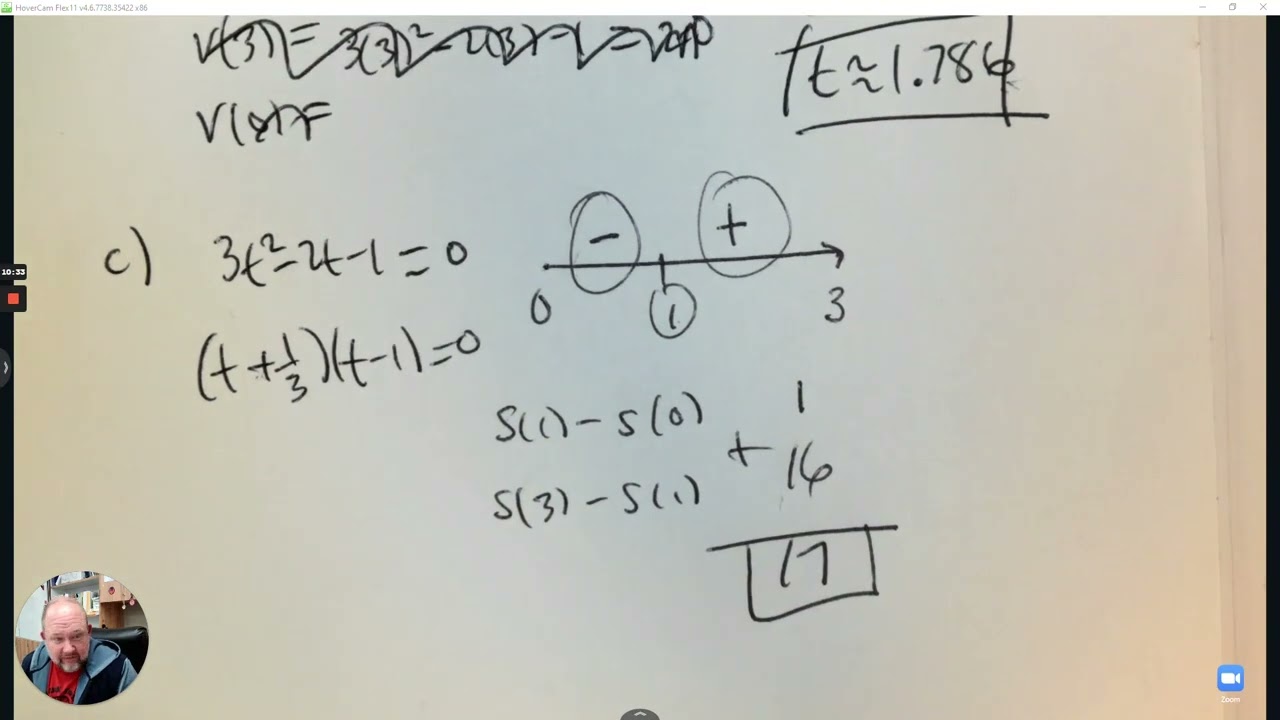 HoverCam Flex11 v4.6.7738.35422 x86
v(3) = 3(3)² - 2(3) - 1 = 20
t ≈ 1.786
v(
10:33
c) 3t² - 2t - 1 = 0
- +
0 1 3
(t + 1/3)(t - 1) = 0
s(1) - s(0) 1
s(3) - s(1) + 16
17
Zoom